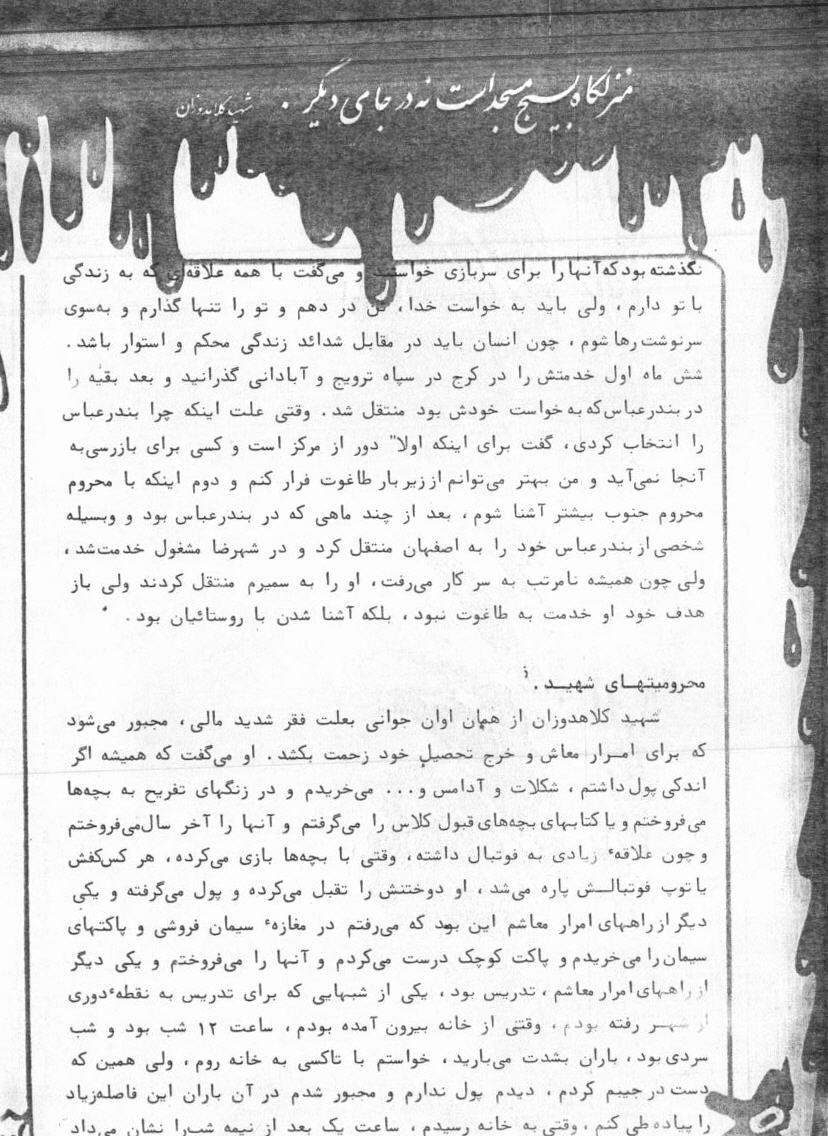 منزلگاه بسیج مسجد است نه در جای دیگر .
شهید کلاهدوزان
نگذشته بود که آنها را برای سربازی خواستند و می‌گفت با همه علاقه‌ای که به زندگی
با تو دارم ، ولی باید به خواست خدا، تن در دهم و تو را تنها گذارم و به‌سوی
سرنوشت رها شوم ، چون انسان باید در مقابل شدائد زندگی محکم و استوار باشد .
شش ماه اول خدمتش را در کرج در سپاه ترویج و آبادانی گذرانید و بعد بقیه را
در بندرعباس که به خواست خودش بود منتقل شد . وقتی علت اینکه چرا بندرعباس
را انتخاب کردی، گفت برای اینکه اولا" دور از مرکز است و کسی برای بازرسی‌به
آنجا نمی‌آید و من بهتر می‌توانم از زیر بار طاغوت فرار کنم و دوم اینکه با محروم
محروم جنوب بیشتر آشنا شوم ، بعد از چند ماهی که در بندرعباس بود و وبسیله
شخصی از بندرعباس خود را به اصفهان منتقل کرد و در شهرضا مشغول خدمت‌شد ،
ولی چون همیشه نامرتب به سر کار می‌رفت، او را به سمیرم منتقل کردند ولی باز
هدف خود او خدمت به طاغوت نبود ، بلکه آشنا شدن با روستائیان بود .
محرومیتهـای شهیـد .
شهید کلاهدوزان از همان اوان جوانی بعلت فقر شدید مالی، مجبور می‌شود
که برای امـرار معاش و خرج تحصیل خود زحمت بکشد . او می‌گفت که همیشه اگر
اندکی پول داشتم ، شکلات و آدامس و... می‌خریدم و در زنگهای تفریح به بچه‌ها
می‌فروختم و یا کتابهای بچه‌های قبول کلاس را می‌گرفتم و آنها را آخر سال‌می‌فروختم
و چون علاقهٔ زیادی به فوتبال داشته، وقتی با بچه‌ها بازی می‌کرده، هر کس‌کفش
یا توپ فوتبالـش پاره می‌شد ، او دوختنش را تقبل می‌کرده و پول می‌گرفته و یکی
دیگر از راههای امرار معاشم این بود که می‌رفتم در مغازهٔ سیمان فروشی و پاکتهای
سیمان را می‌خریدم و پاکت کوچک درست می‌کردم و آنها را می‌فروختم و یکی دیگر
از راههای امرار معاشم ، تدریس بود ، یکی از شبهایی که برای تدریس به نقطهٔ دوری
از شهـر رفته بودم ، وقتی از خانه بیرون آمده بودم ، ساعت ۱۲ شب بود و شب
سردی بود ، باران بشدت می‌بارید ، خواستم با تاکسی به خانه روم ، ولی همین که
دست در جیبم کردم ، دیدم پول ندارم و مجبور شدم در آن باران این فاصله‌زیاد
را پیاده طی کنم ، وقتی به خانه رسیدم ، ساعت یک بعد از نیمه شب‌را نشان می‌داد